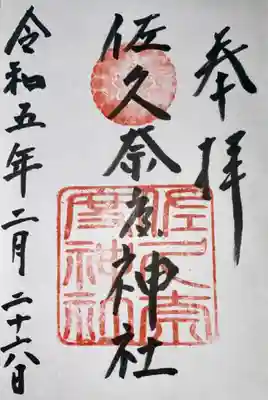 奉拝
佐久奈度神社
令和五年二月二十六日
佐久奈
度神社